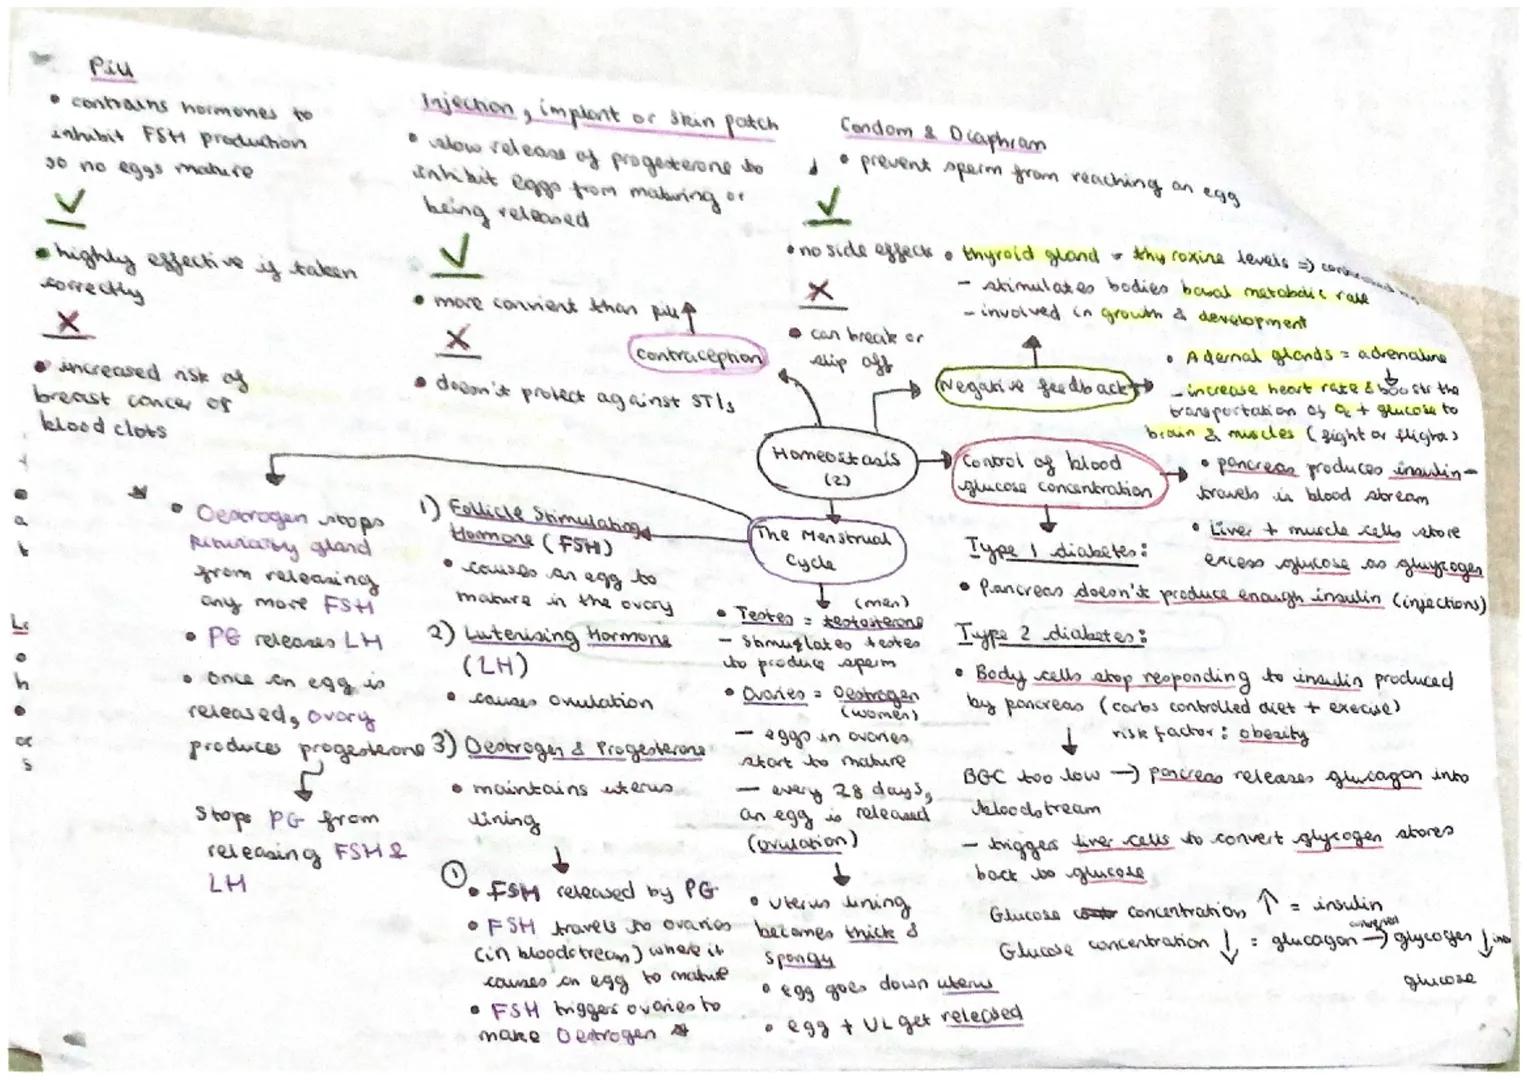 Pill
• contrains hormones to
inhibit FSH production
so no eggs mature
✓
• highly effective if taken
correctly
X
• increased risk of
breast cancer or
blood clots
Injection, implant or skin patch
• slow release of progesterone to
inhibit eggs from maturing or
being released
✓
• more convient than pill
X
• doesn't protect against STIs
contraception
Condom & Diaphram
• prevent sperm from reaching an egg
✓
• no side effects
X
• can break or
slip off
Homeostasis
(2)
Negative feedback
• thyroid gland = thyroxine levels =>
- stimulates bodies basal metabolic rate
- involved in growth & development
• Adernal glands = adrenaline
- increase heart rate & boosts the
transportation of O2 + glucose to
brain & muscles (fight or flight)
Control of blood
glucose concentration
• pancreas produces insulin -
travels in blood stream
• Liver + muscle cells store
excess glucose as gluycogen
Type 1 diabetes:
• Pancreas doesn't produce enough insulin (injections)
Type 2 diabetes:
• Body cells stop responding to insulin produced
by pancreas (carbs controlled diet + execise)
risk factor: obesity
BGC too low → pancreas releases glucagon into
bloodstream
- trigges liver cells to convert glycogen stores
back to glucose
Glucose concentration ↑ = insulin
Glucose concentration ↓ = glucagon → glycogen ↓ into
converted
glucose
The Menstrual
Cycle
• Testes = testosterone
(men)
- stimuglates testes
to produce sperm
• Ovaries = Oestrogen
(women)
- eggs in ovaries
start to mature
- every 28 days,
an egg is released
(ovulation)
• uterus lining
becomes thick &
spongy
• egg goes down uterus
• egg + UL get released
1) Follicle Stimulating
Hormone (FSH)
• causes an egg to
mature in the ovary
2) Luterising Hormone
(LH)
• causes ovulation
3) Oestrogen & Progesterone
• maintains uterus
lining
①
• FSH released by PG
• FSH travels to ovaries
(in bloodstream) where it
causes an egg to mature
• FSH triggers ovaries to
make Oestrogen *
* • Oestrogen stops
pituitary gland
from releasing
any more FSH
• PG releases LH
• once an egg is
released, ovary
produces progesterone
Stops PG from
releasing FSH &
LH